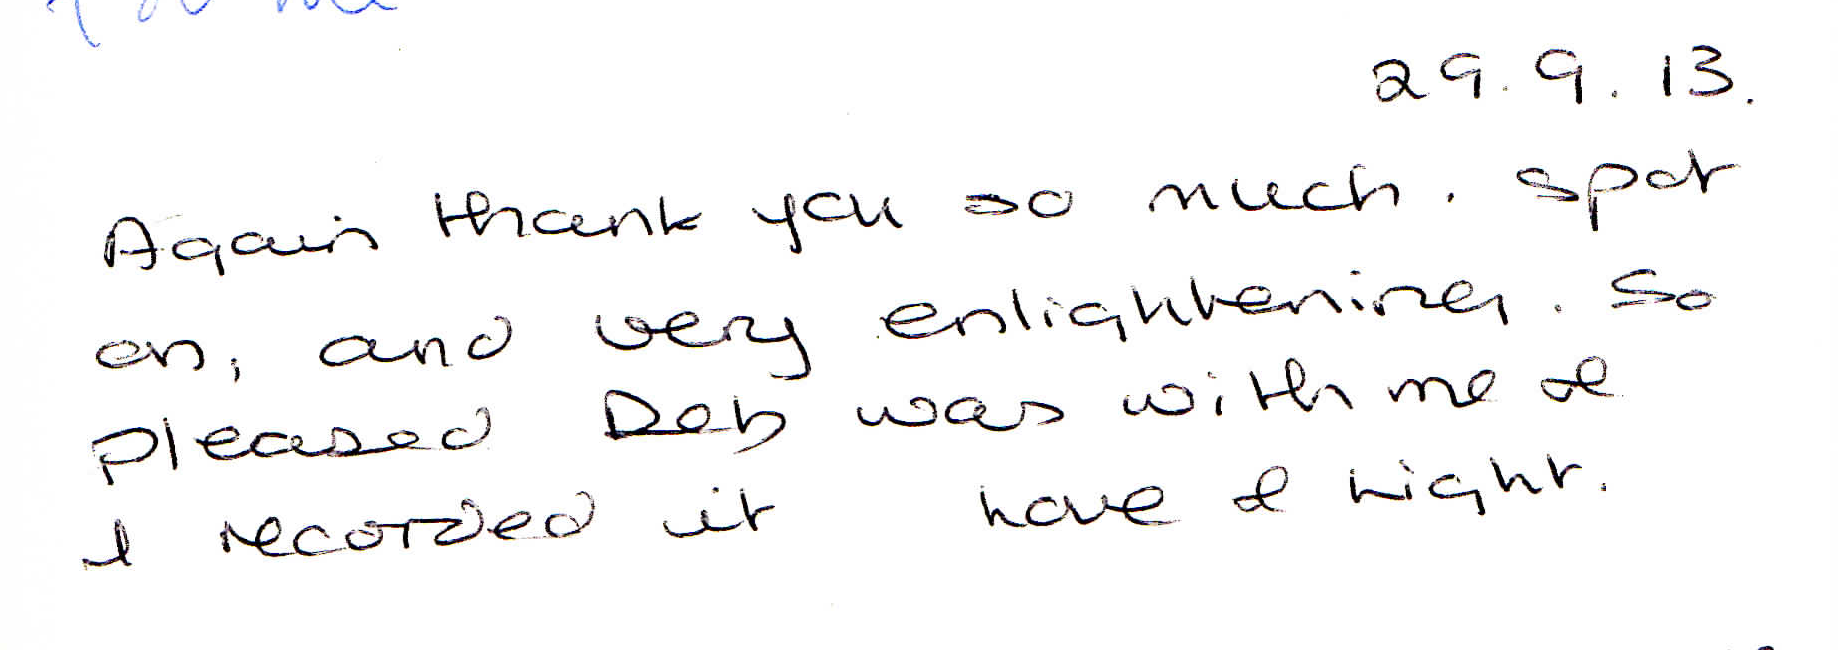 29.9.13.
Again thank you so much. Spot
on, and very enlightening. So
pleased Deb was with me &
I recorded it have & night.